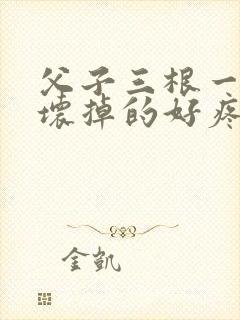 父子三根一
壊掉的好疼
金凯